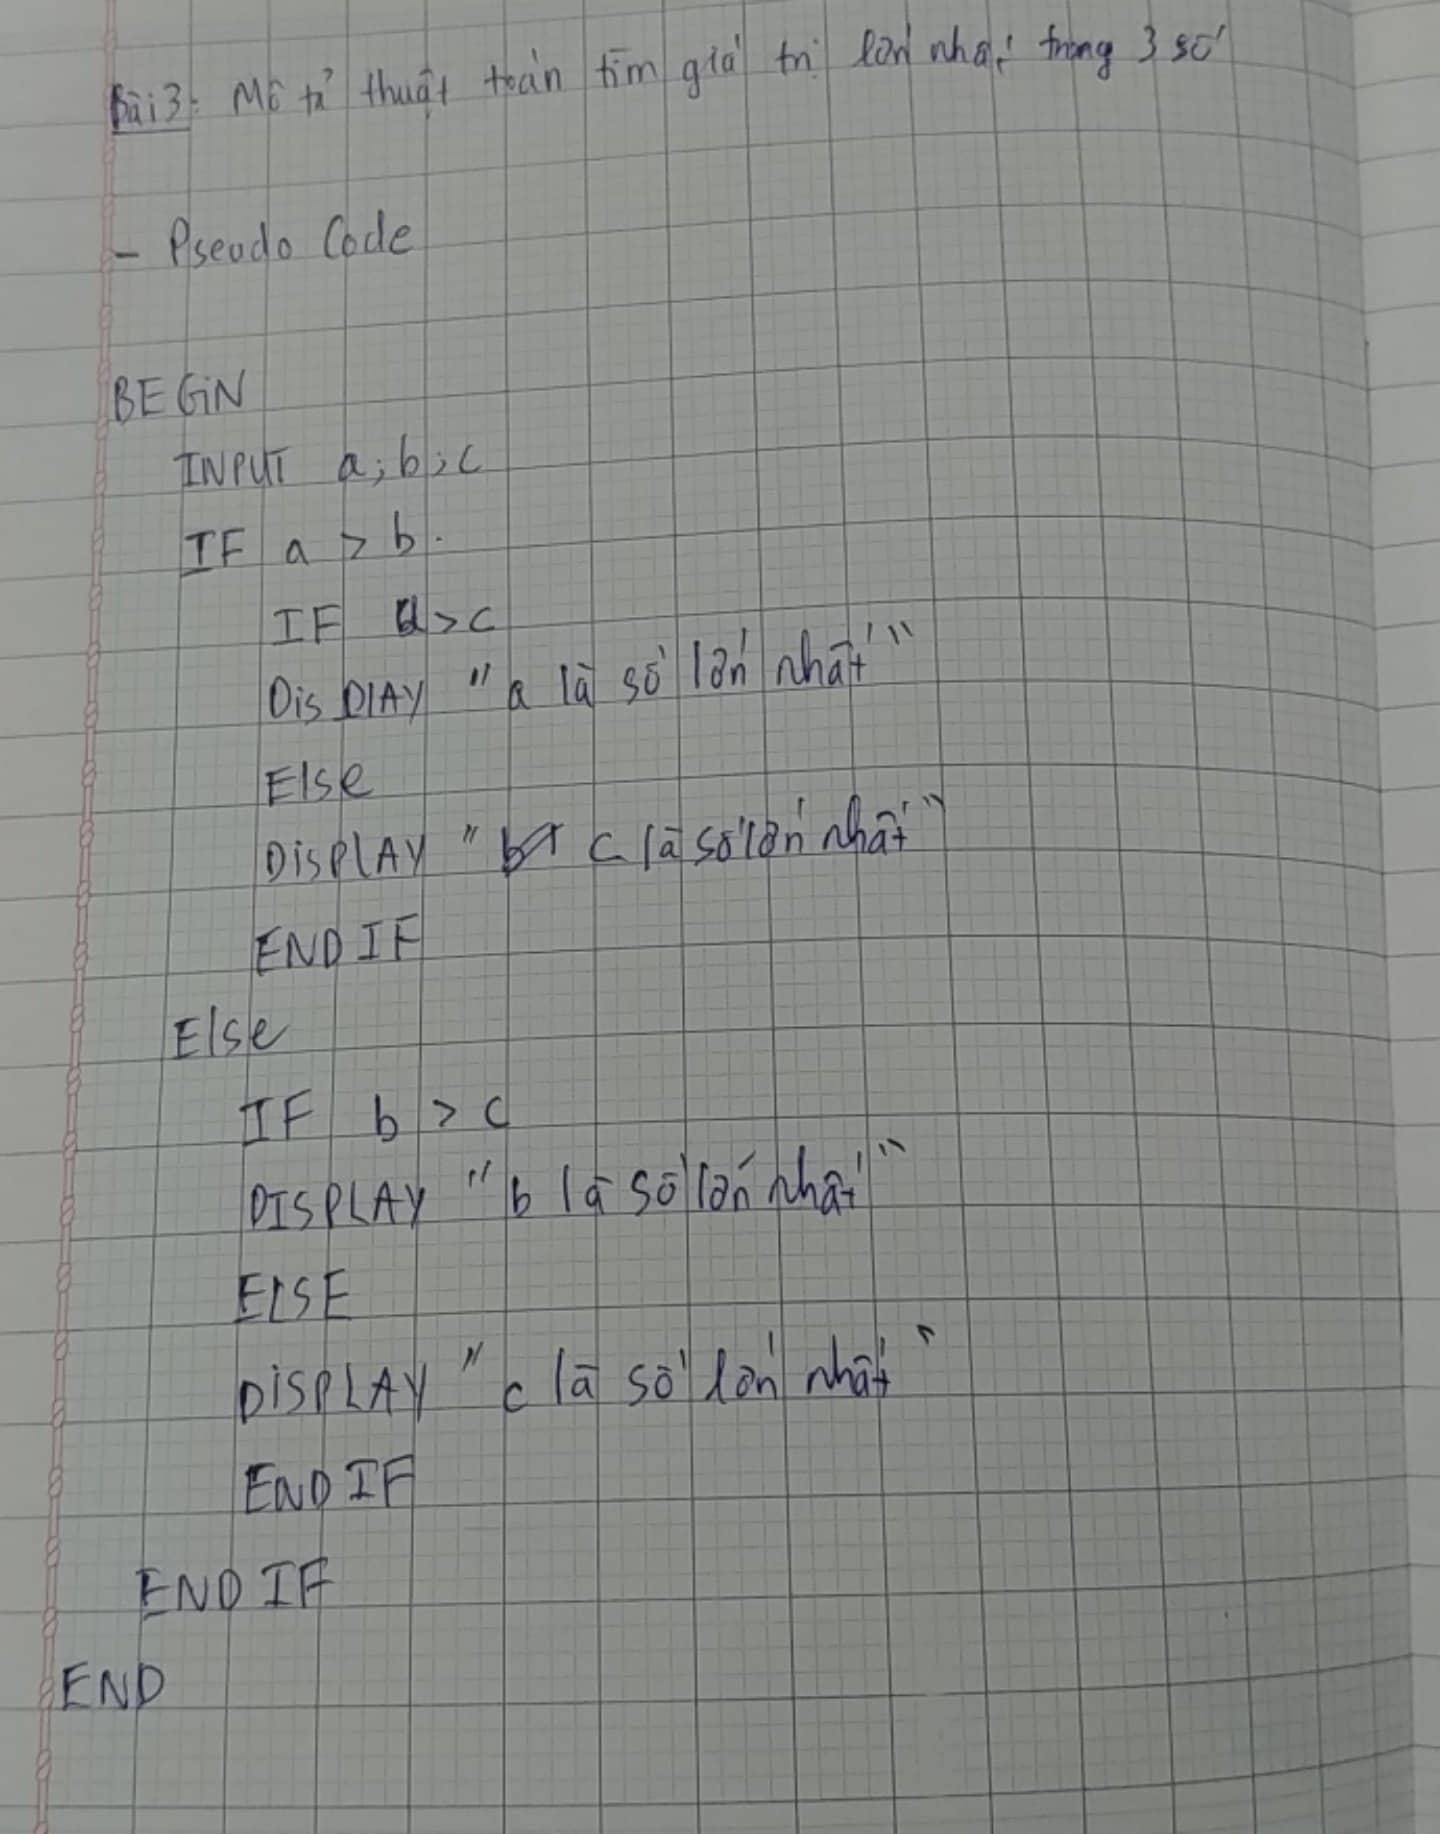 Bài 3: Mô tả thuật toán tìm giá trị lớn nhất trong 3 số
- Pseudo Code
BEGiN
INPUT a; b; c
IF a > b.
IF a > c
DisPlAY "a là số lớn nhất"
Else
DiSPLAY " c là số lớn nhất"
END IF
Else
IF b > c
DISPLAY "b là số lớn nhất"
ELSE
DiSPLAY "c là số lớn nhất"
END IF
END IF
END